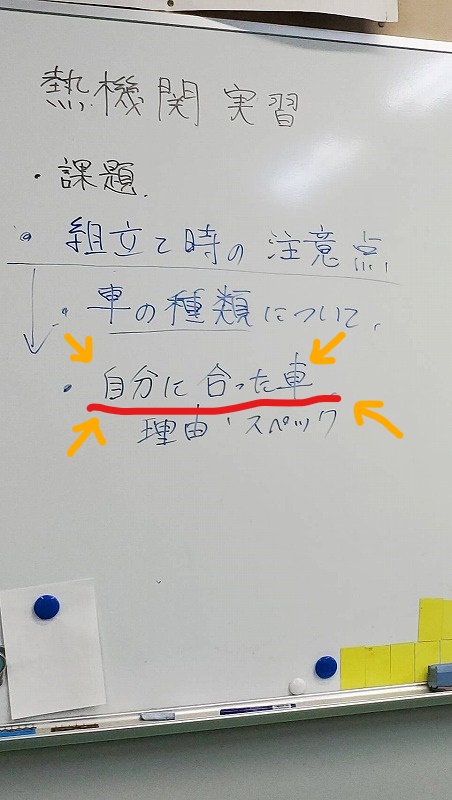 熱機関実習
・課題.
・組立て時の注意点
・車の種類について.
・自分に合った車.
理由・スペック